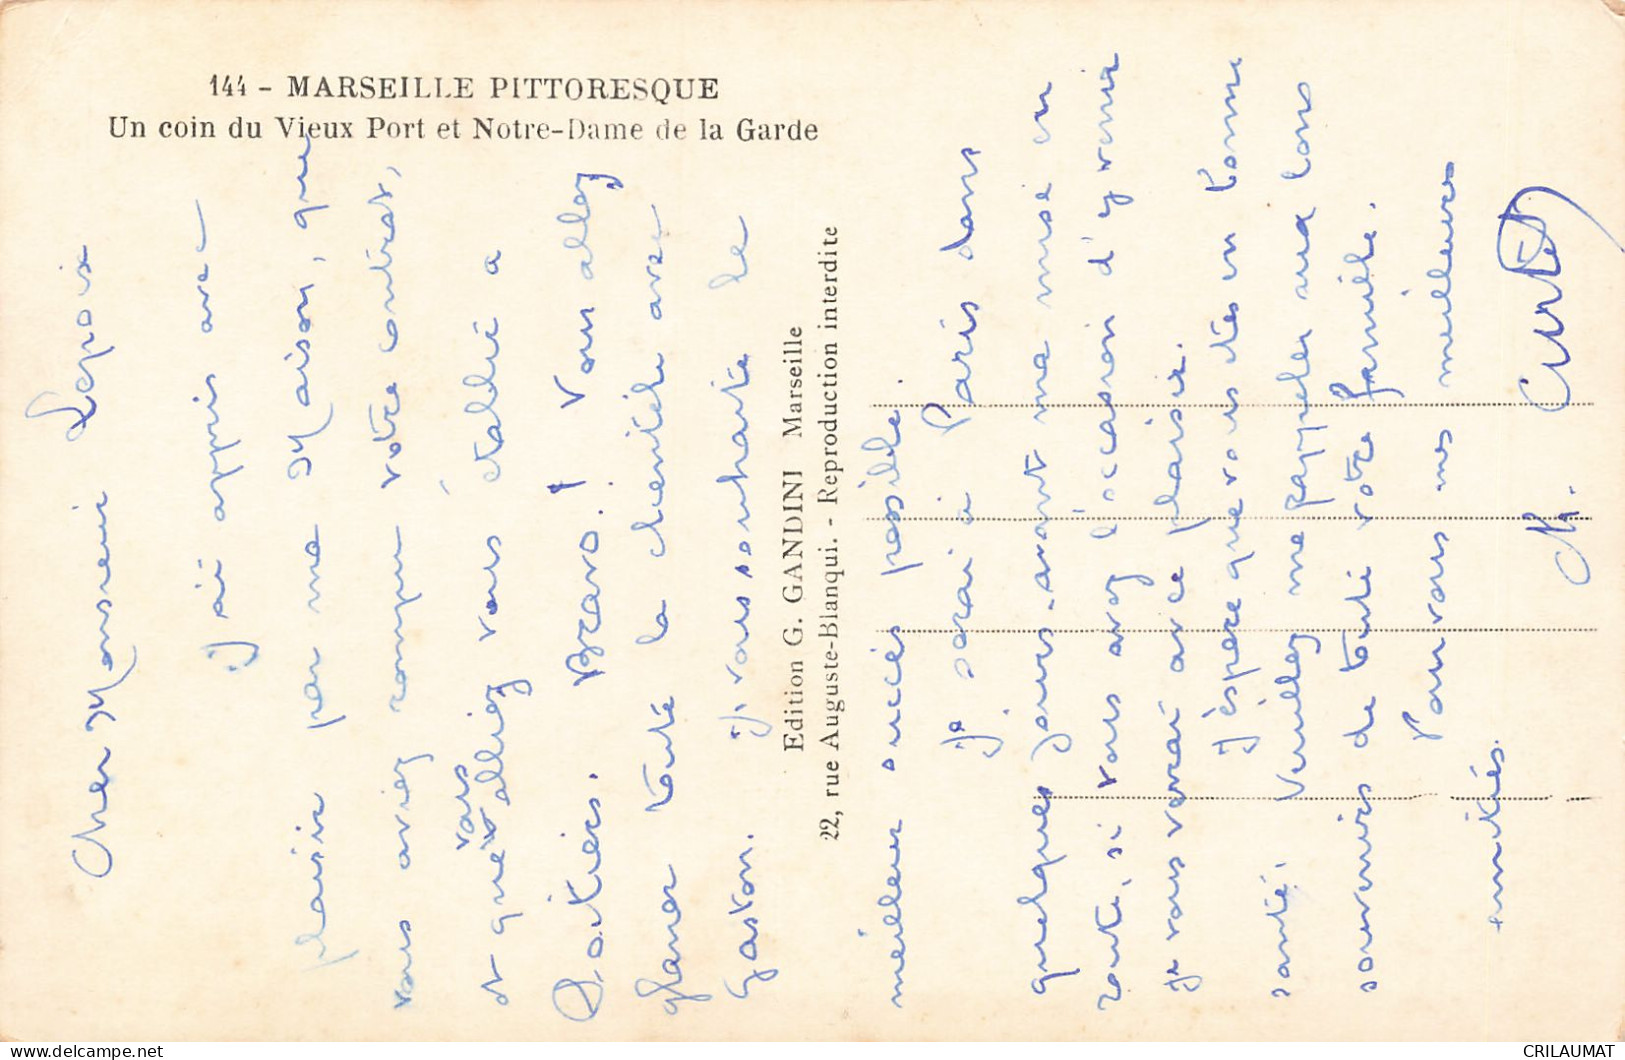 144 - MARSEILLE PITTORESQUE
Un coin du Vieux Port et Notre-Dame de la Garde
Edition G. GANDINI Marseille
22, rue Auguste-Blanqui. - Reproduction interdite
Cher Monsieur Lepoix
J'ai appris avec
plaisir par ma Maison, que
vous aviez rompu votre contrat,
et que vous alliez vous établir à
Poitiers. Bravo! Vous allez
glaner toute la clientèle avec
Gaston. Je vous souhaite le
meilleur succès possible.
Je serai à Paris dans
quelques jours. avant ma mise en
route, si vous avez l'occasion d'y venir
je vous verrai avec plaisir.
J'espère que vous êtes en bonne
santé. Veuillez me rappeler aux bons
souvenirs de toute votre famille.
Pour vous mes meilleures
amitiés.
CRILAUMAT